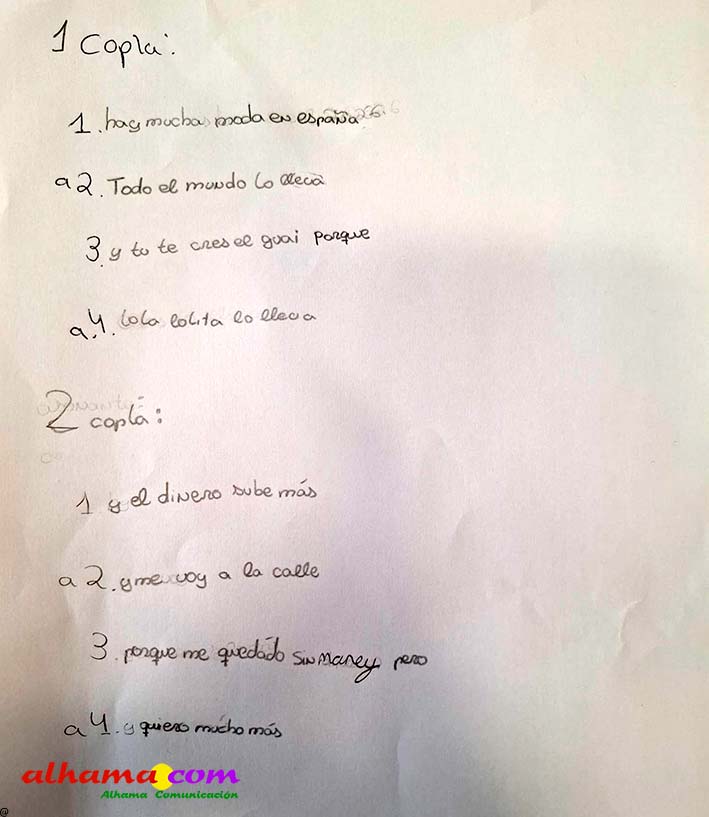 1 Copla:
1. hay mucha moda en españa
a 2. Todo el mundo lo lleva
3. y tu te cres el guai porque
a. 4. Lola lolita lo lleva
2 copla:
1 y el dinero sube más
a 2. y me voy a la calle
3. porque me quedádo sin maney pero
a 4. y quiero mucho más
alhama.com
Alhama Comunicación
@